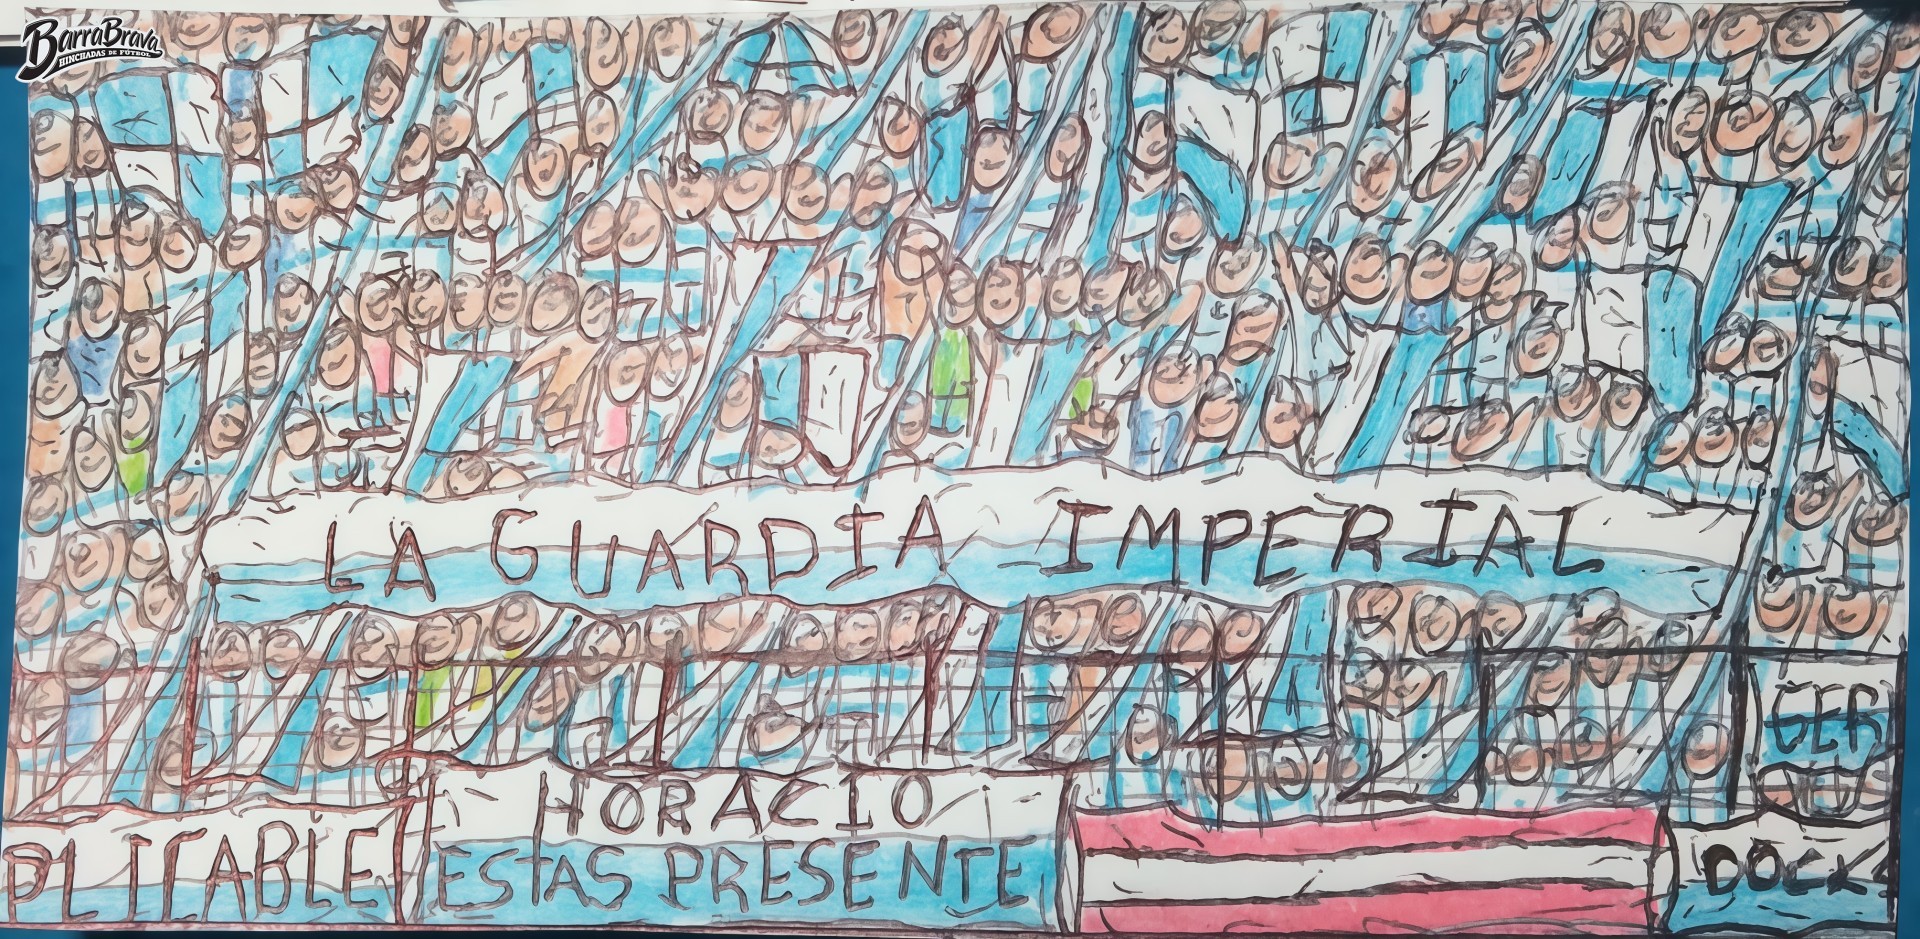 BarraBrava
HINCHADAS DE FÚTBOL
LA GUARDIA IMPERIAL
GER
PLICABLE
HORACIO
ESTAS PRESENTE
DOCK